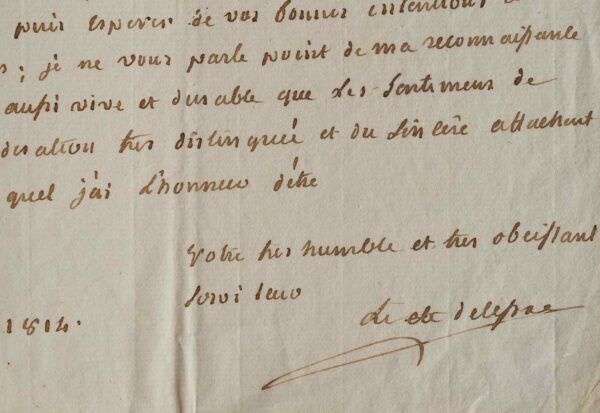 puis esperer de vos bonnes intentions
; je ne vous parle point de ma reconnaissante
aussi vive et durable que Les Sentimens de
deration tres distinguée et du Sincère attachent
quel j'ai L'honneur d'être
Votre tres humble et tres obeissant
Serviteur
1814.
Le cte